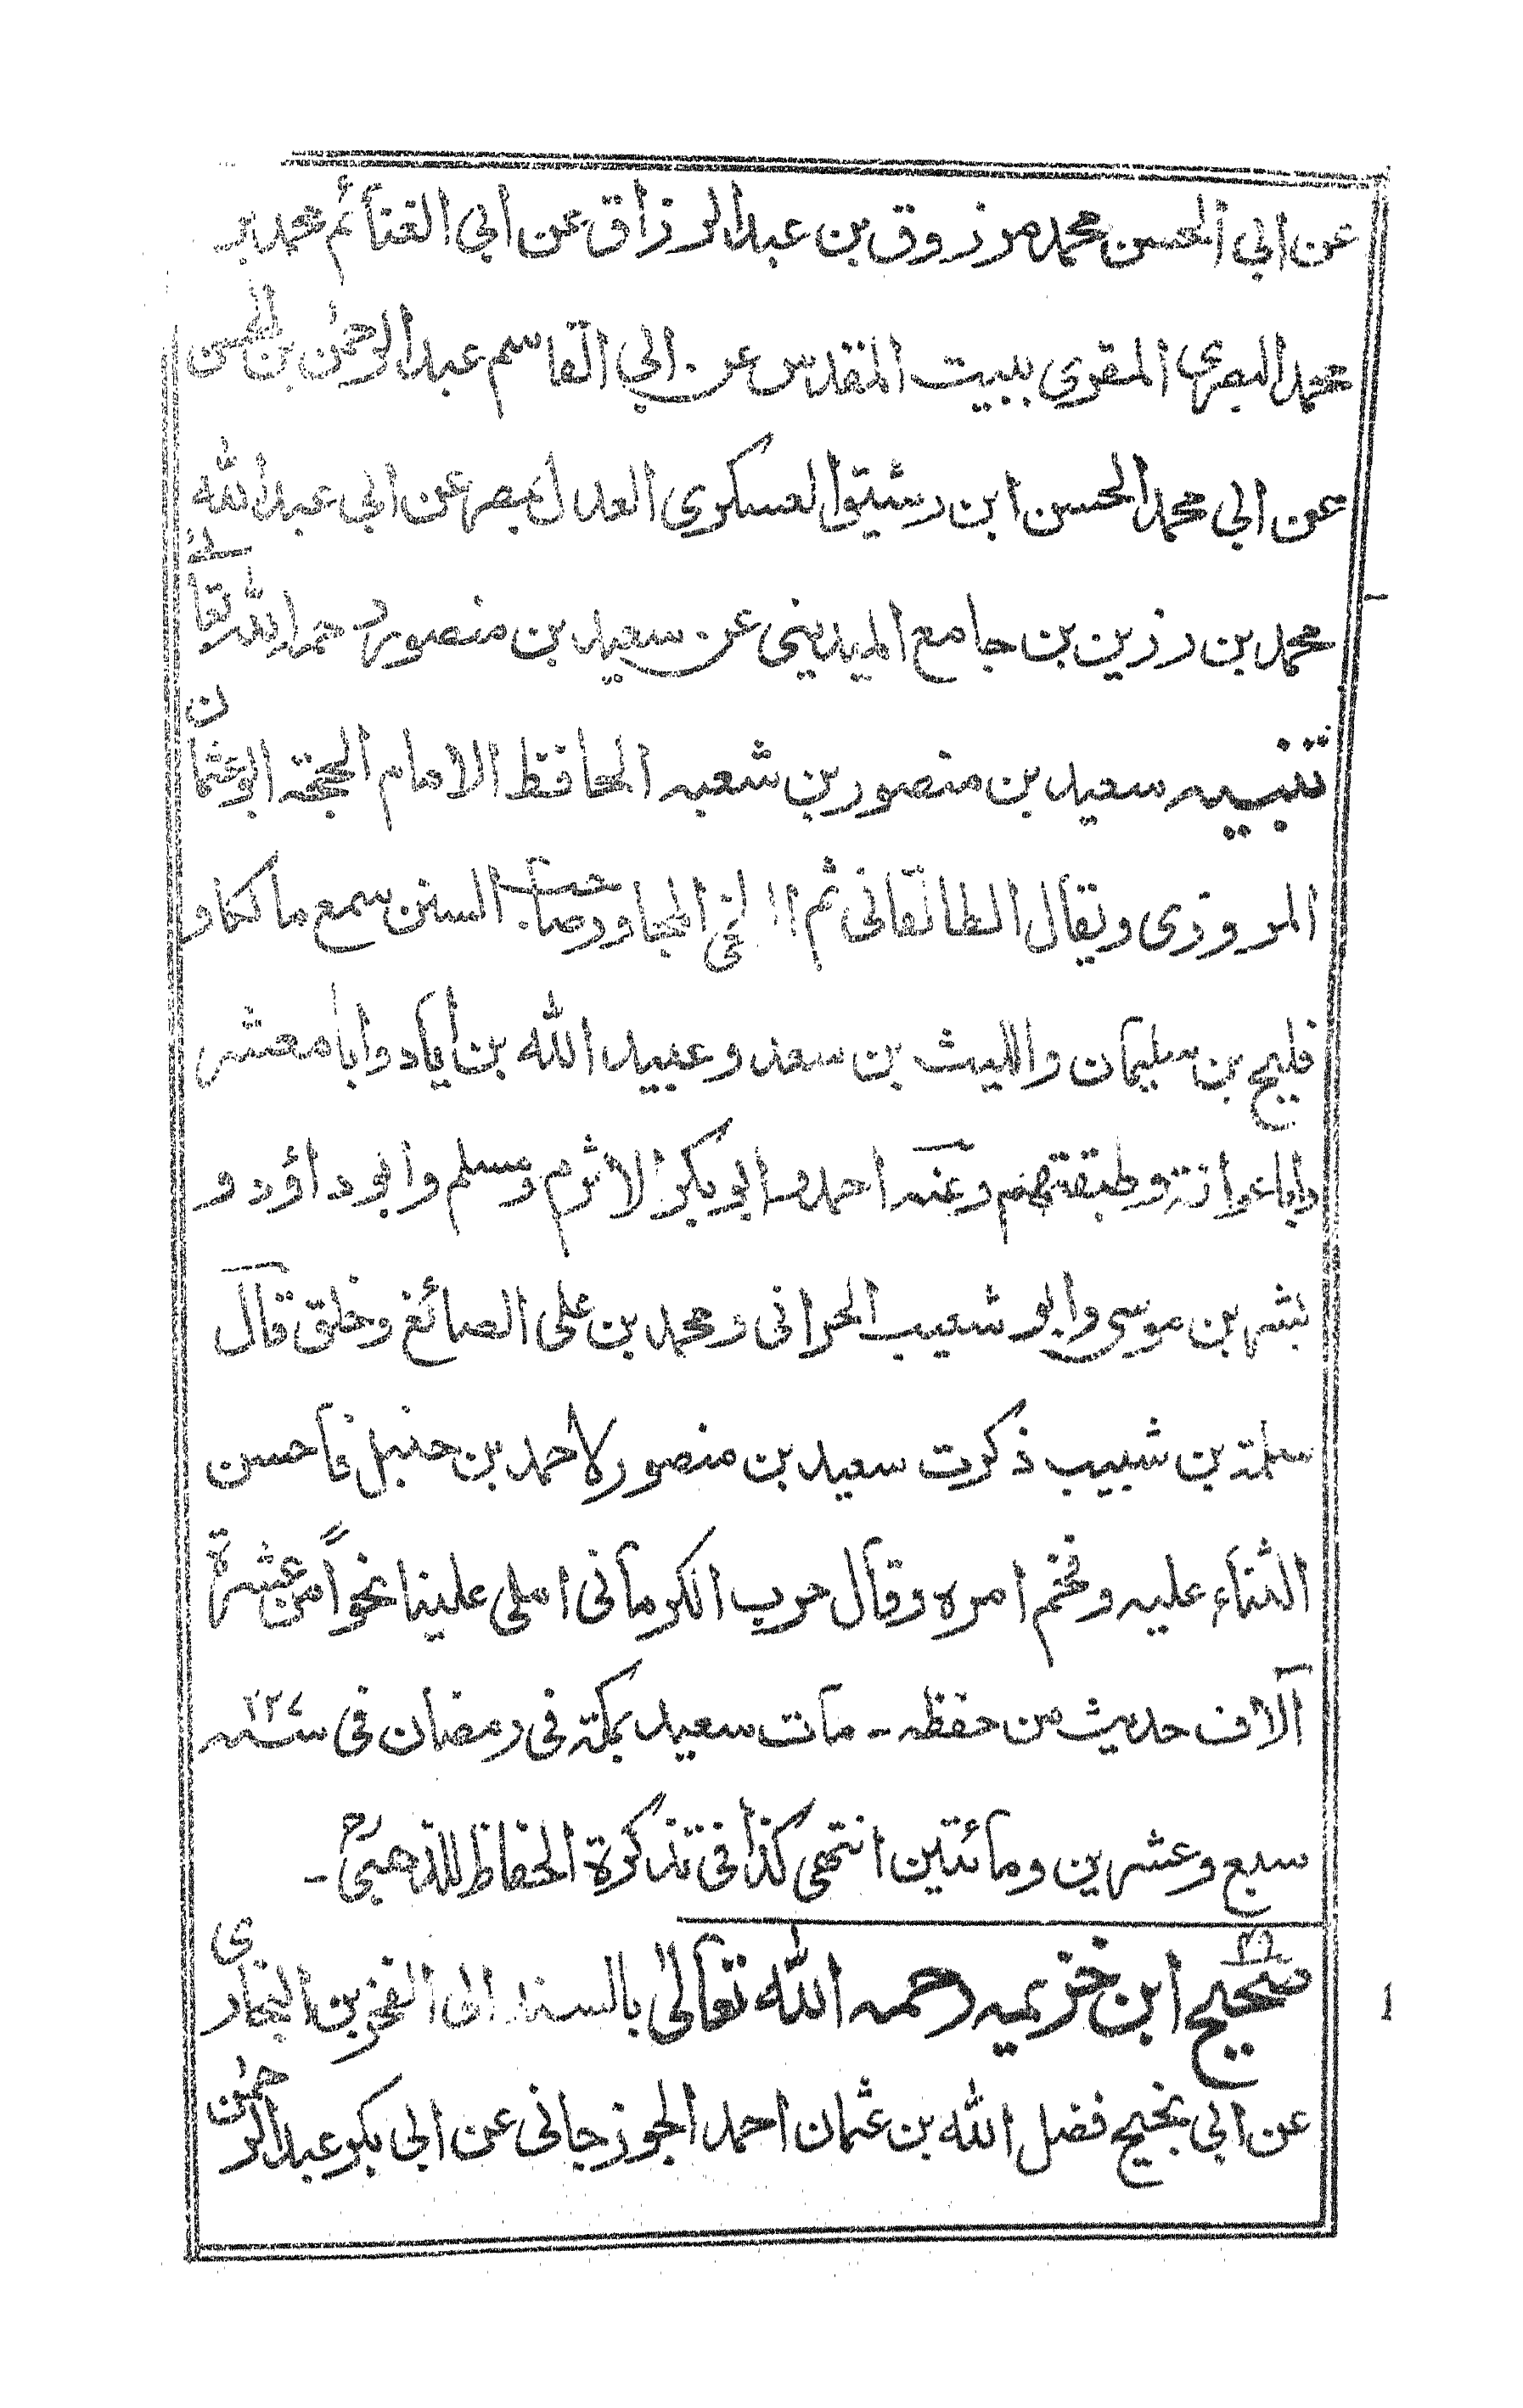 عن ابي الحسن محمد مرزوق بن عبد الرزاق عن ابي الغنائم محمد بن
محمد البصري المقري ببيت المقدس عن ابي القاسم عبد الرحمن بن الحسن
عن ابي محمد الحسن ابن رشيق العسكري العدل بمصر عن ابي عبد الله
محمد بن رزين بن جامع المديني عن سعيد بن منصور رحمه الله تعالى
تنبيه سعيد بن منصور بن شعبه الحافظ الامام الحجة ابو عثمان
المروزى ويقال الطالقانى ثم المجاور صاحب السنن سمع مالكا و
فليح بن سليمان والليث بن سعد وعبيد الله بن اياد وابا معشر
وابا عوانة وطبقتهم وعنه احمد وابو بكر الاثرم ومسلم وابو داؤد و
بشر بن موسى وابو شعيب الحرانى ومحمد بن على الصائغ وخلق قال
سلمة بن شبيب ذكرت سعيد بن منصور لاحمد بن حنبل فاحسن
الثناء عليه وفخم امره وقال حرب الكرمانى املى علينا نحوا من عشرة
آلاف حديث من حفظه - مات سعيد بمكة فى رمضان فى سنه ٢٢٧
سبع وعشرين ومائتين انتهى كذا فى تذكرة الحفاظ للذهبىؒ -
صحيح ابن خزيمه رحمه الله تعالىٰ بالسند الى الفخر بن البخارى
عن ابي نجيح فضل الله بن عثمان احمد الجوزجانى عن ابي بكر عبد الرحمٰن